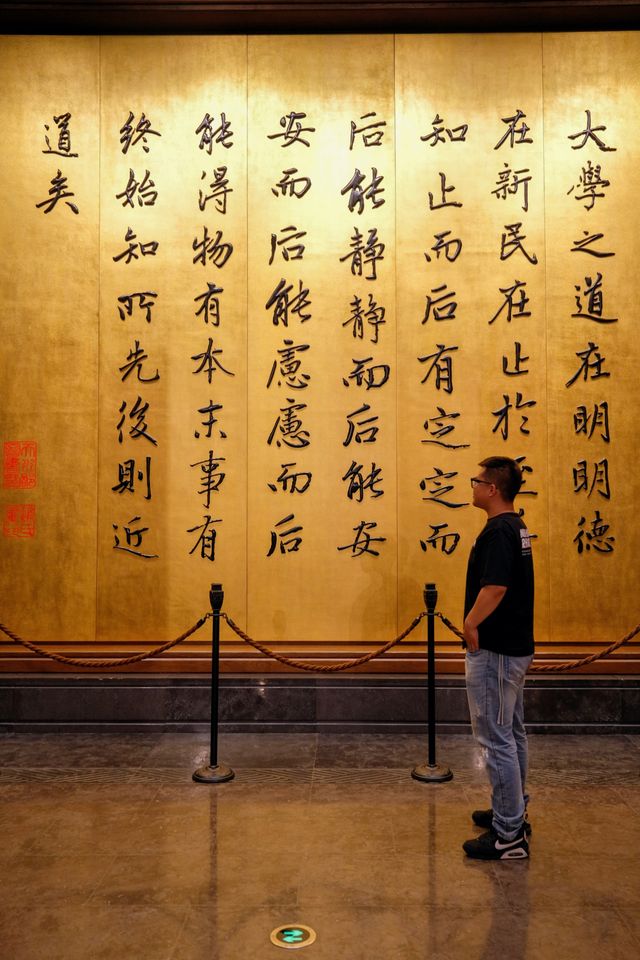 大學之道在明明德
在新民在止於至
知止而后有定定而
后能靜靜而后能安
安而后能慮慮而后
能得物有本末事有
終始知所先後則近
道矣